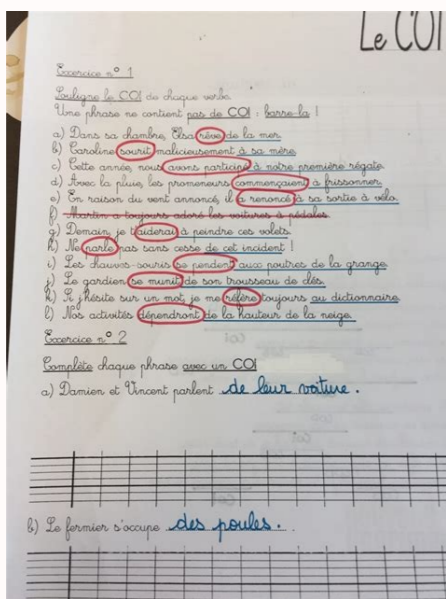 Le COI
Exercice n° 1
Souligne le COI de chaque verbe.
Une phrase ne contient pas de COI : barre-la !
a) Dans sa chambre, Elsa rêve de la mer.
b) Caroline sourit malicieusement à sa mère.
c) Cette année, nous avons participé à notre première régate.
d) Avec la pluie, les promeneurs commençaient à frissonner.
e) En raison du vent annoncé, il a renoncé à sa sortie à vélo.
f) Martin a toujours adoré les voitures à pédales.
g) Demain, je t'aiderai à peindre ces volets.
h) Ne parle pas sans cesse de cet incident !
i) Les chauves-souris se pendent aux poutres de la grange.
j) Le gardien se munit de son trousseau de clés.
k) Si j'hésite sur un mot, je me réfère toujours au dictionnaire.
l) Nos activités dépendront de la hauteur de la neige.
Exercice n° 2
Complète chaque phrase avec un COI
a) Damien et Vincent parlent de leur voiture.
b) Le fermier s'occupe des poules.